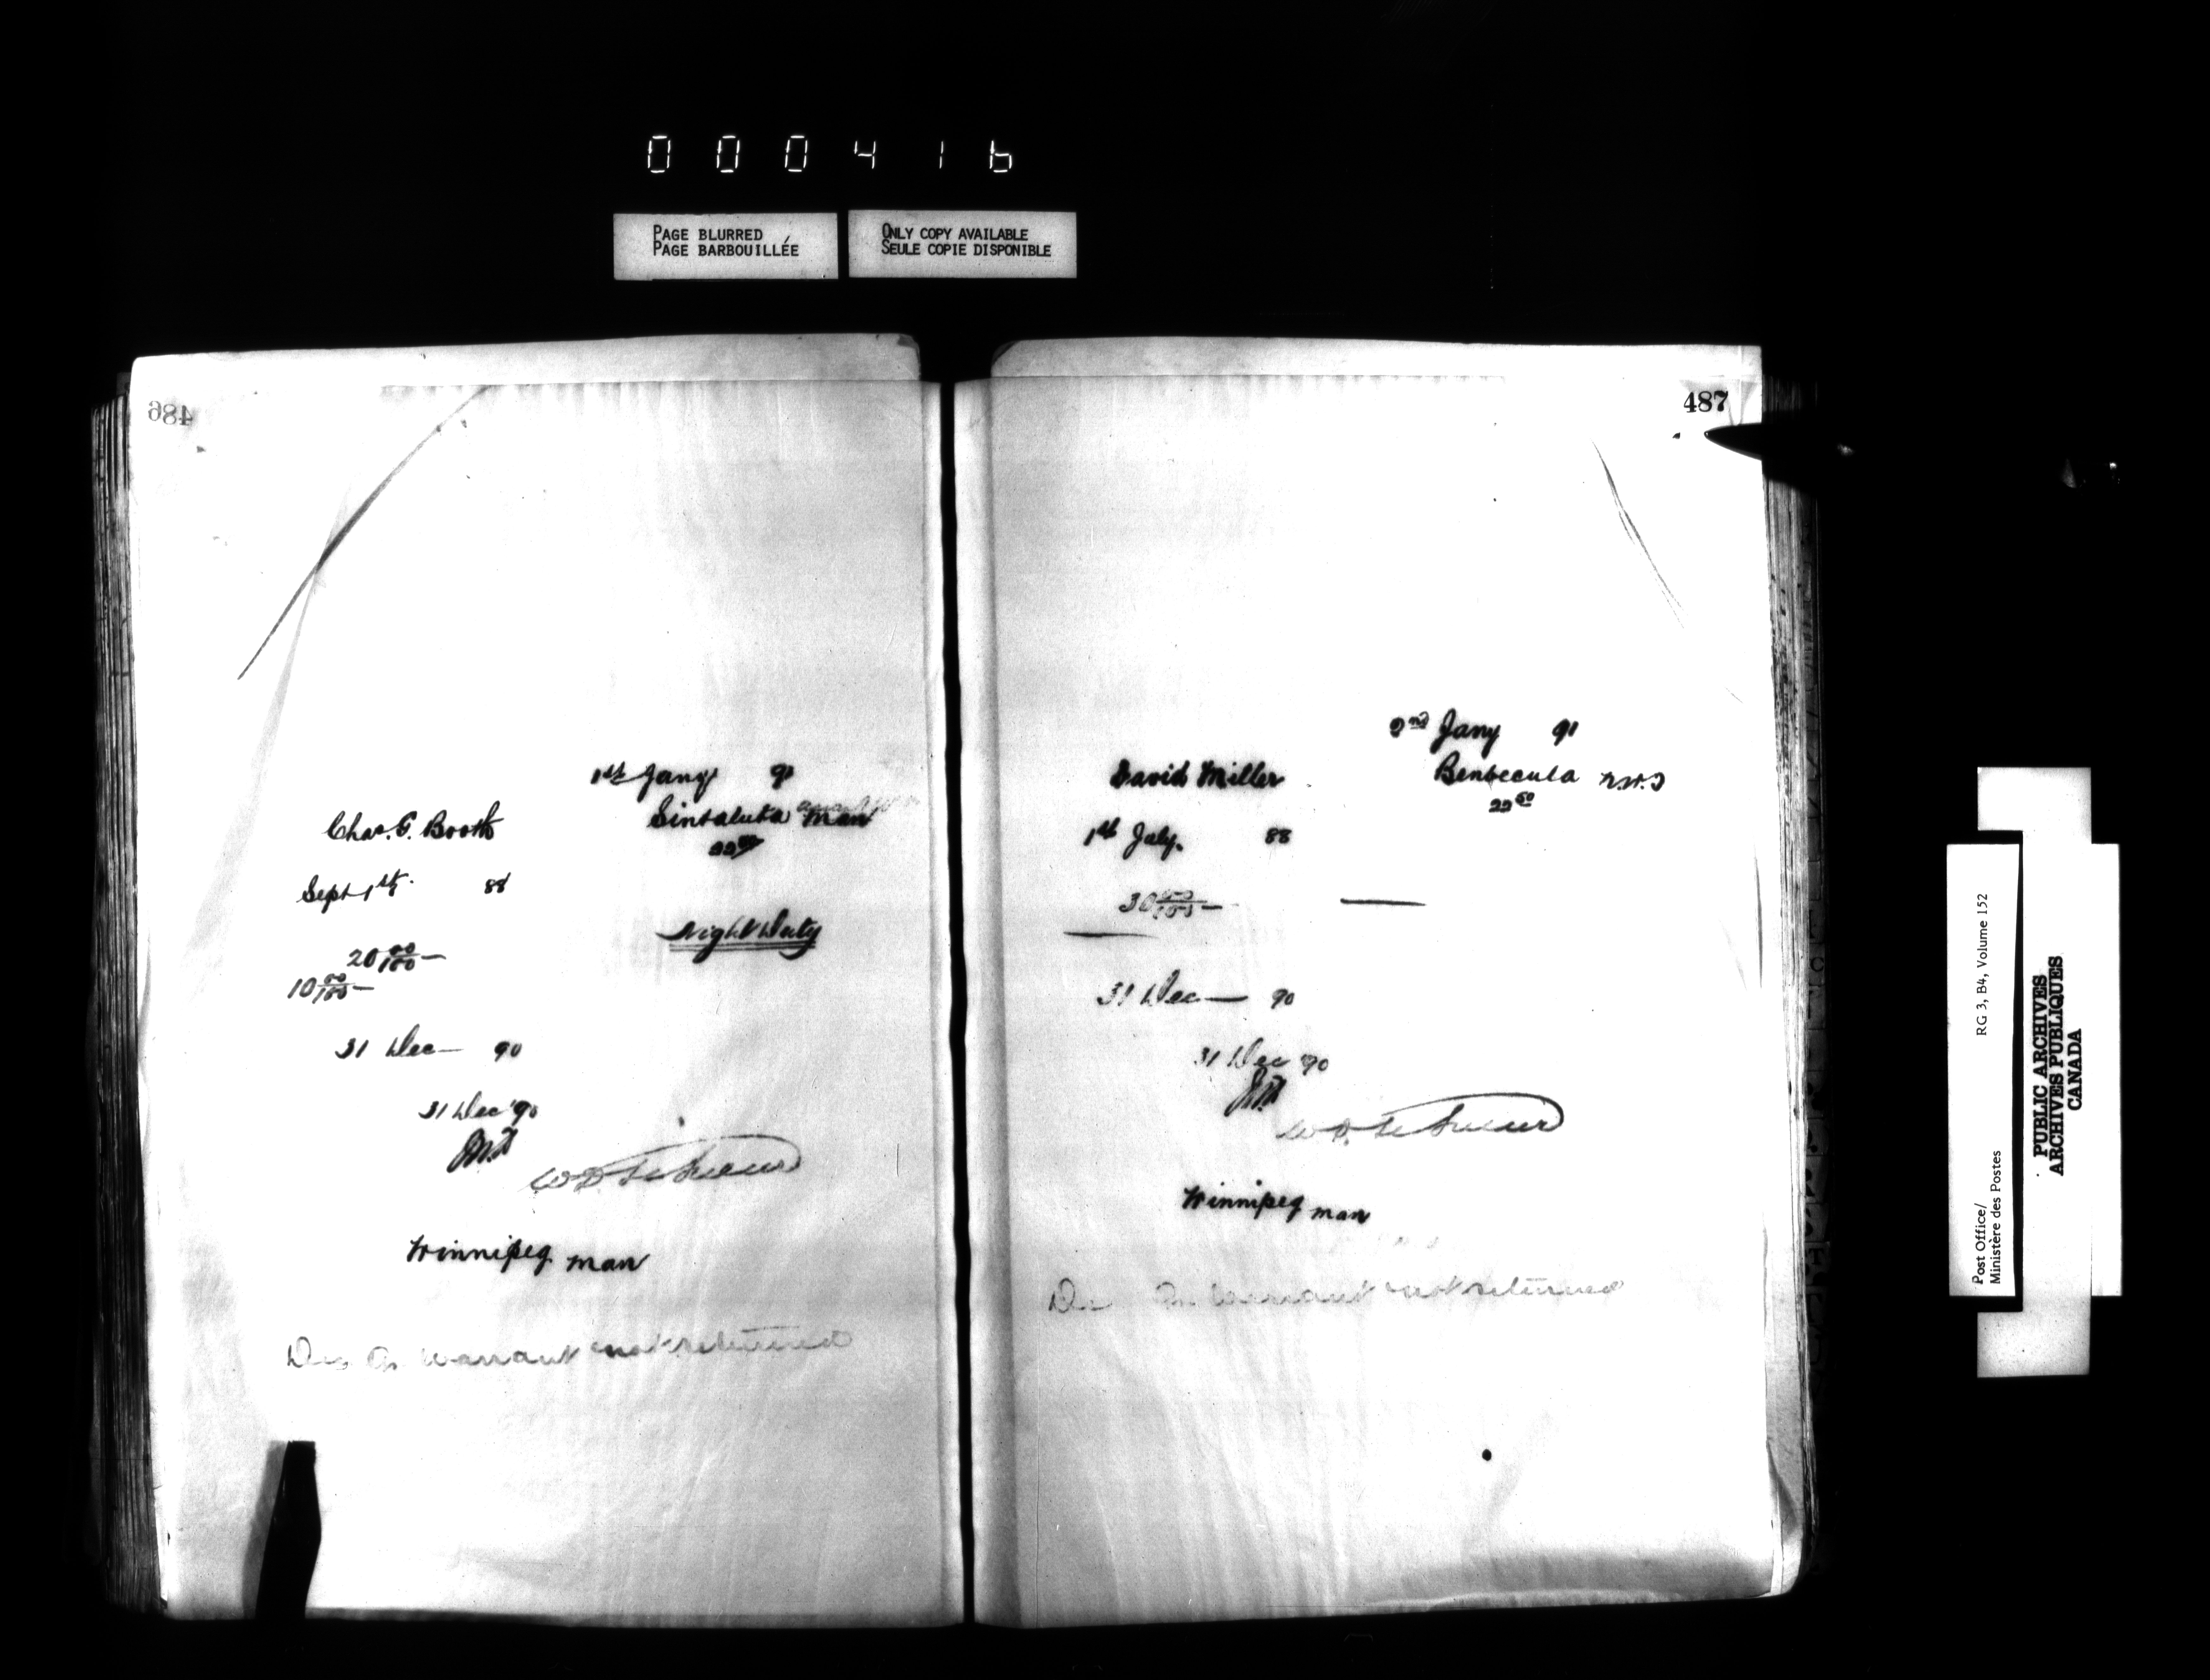 000416
PAGE BLURRED
PAGE BARBOUILLÉE
ONLY COPY AVAILABLE
SEULE COPIE DISPONIBLE
486
1st Jany 91
Sintaluta Man
Chas. G. Booth
22 50
Sept 1st 88
Night Duty
20 00/100 —
10 00/100 —
31 Dec — 90
31 Dec '90
W D LeSueur
Winnipeg Man
Warrant not returned
487
2nd Jany 91
David Miller
Benbecula N.W.T
22 50
1st July. 88
30 00/100 —
31 Dec — 90
31 Dec '90
W D LeSueur
Winnipeg Man
Warrant not returned
RG 3, B4, Volume 152
Post Office/
Ministère des Postes
PUBLIC ARCHIVES
ARCHIVES PUBLIQUES
CANADA